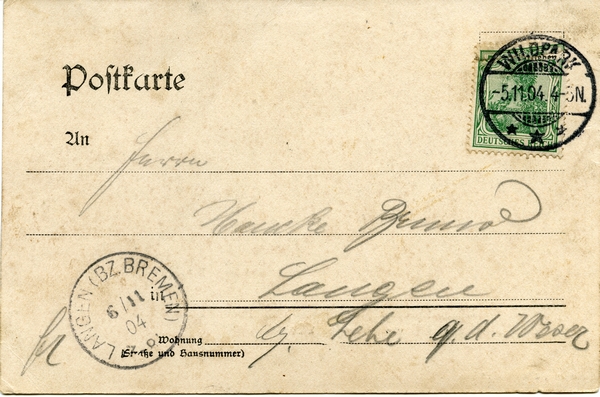 Postkarte
WILDPARK
-5.11.04 4-5N.
DEUTSCHES REICH
An
Herrn
Hancke Bruno
in Langen
bz. Lehe a. d. Weser
LANGEN (BZ. BREMEN)
6/11
04
Wohnung
(Straße und Hausnummer)